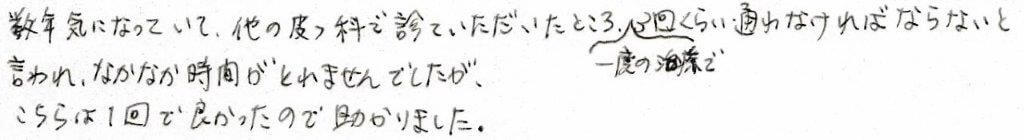 数年気になっていて、他の皮フ科で診ていただいたところ、3回くらい通わなければならないと
一度の治療で
言われ、なかなか時間がとれませんでしたが、
こちらは1回で良かったので助かりました。